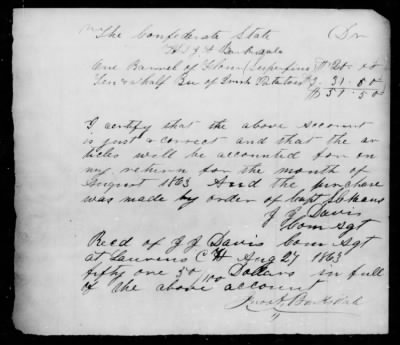 The Confederate State (Dr
One Barrel of Flour (Superfine $20.00
Ten & a half Bu of Irish Potatoes 3 31.50
$51.50
I certify that the above account
is just & correct and that the ar
ticles will be accounted for on
my return for the month of
August 1863 And the purchase
was made by order of Capt
J J Davis
Com Sgt
Recd of J J Davis Com Sgt
at Laurens C H Aug 27 1863
fifty one 50/100 Dollars in full
of the above account
Barksdale